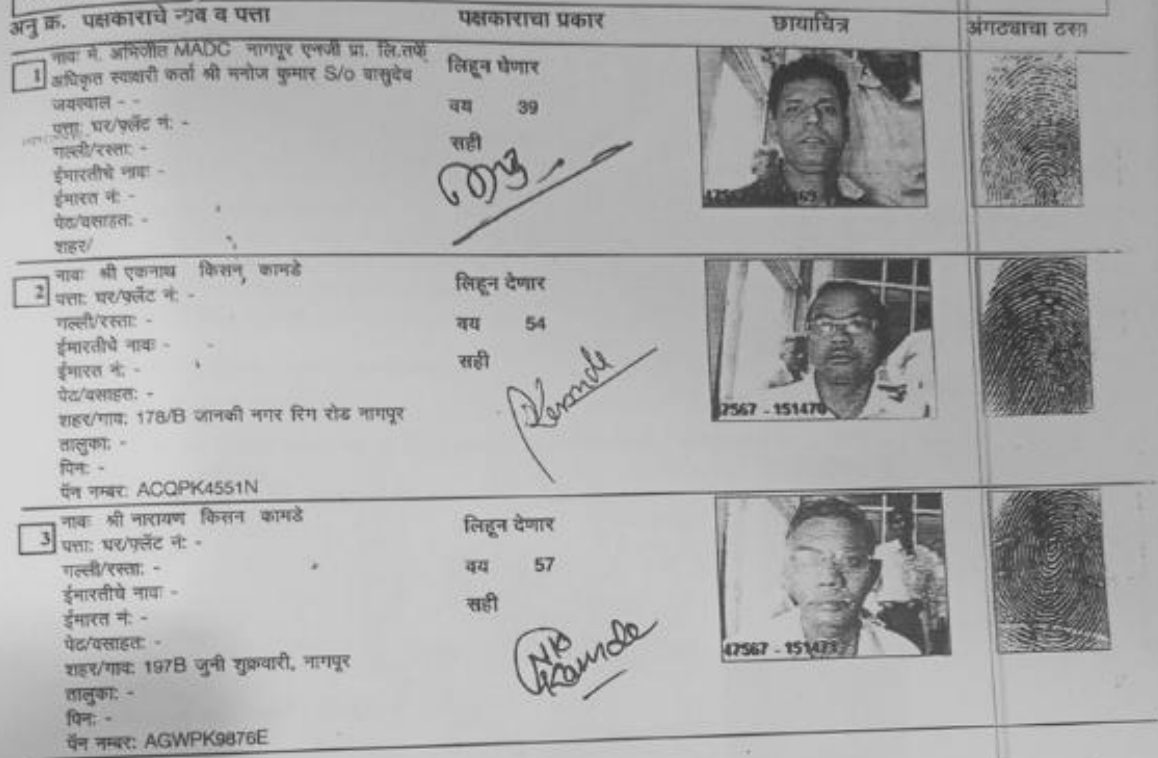 अनु क्र. पक्षकाराचे नाव व पत्ता पक्षकाराचा प्रकार छायाचित्र अंगठ्याचा ठसा
1
नावः मे. अभिजीत MADC नागपूर एनर्जी प्रा. लि.तर्फे
अधिकृत स्वाक्षरी कर्ता श्री मनोज कुमार S/o वासुदेव
जयस्वाल - -
पत्ता: घर/फ़्लॅट नं: -
गल्ली/रस्ता: -
ईमारतीचे नावः -
ईमारत नं: -
पेठ/वसाहत: -
शहर/
लिहून घेणार
वय 39
सही
2
नावः श्री एकनाथ किसन कामडे
पत्ता: घर/फ़्लॅट नं: -
गल्ली/रस्ता: -
ईमारतीचे नावः - -
ईमारत नं: -
पेठ/वसाहत: -
शहर/गाव: 178/B जानकी नगर रिंग रोड नागपूर
तालुका: -
पिन: -
पॅन नम्बर: ACQPK4551N
लिहून देणार
वय 54
सही
Kamde
7567 - 151470
3
नावः श्री नारायण किसन कामडे
पत्ता: घर/फ़्लॅट नं: -
गल्ली/रस्ता: -
ईमारतीचे नावः -
ईमारत नं: -
पेठ/वसाहत: -
शहर/गाव: 197B जुनी शुक्रवारी, नागपूर
तालुका: -
पिन: -
पॅन नम्बर: AGWPK9876E
लिहून देणार
वय 57
सही
NK
Kamde
47567 - 151473